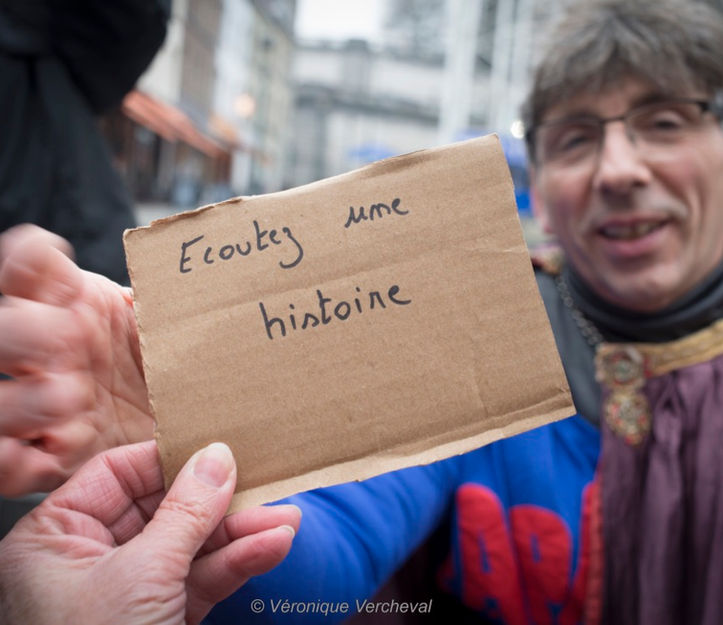 Ecoutez une
histoire
© Véronique Vercheval